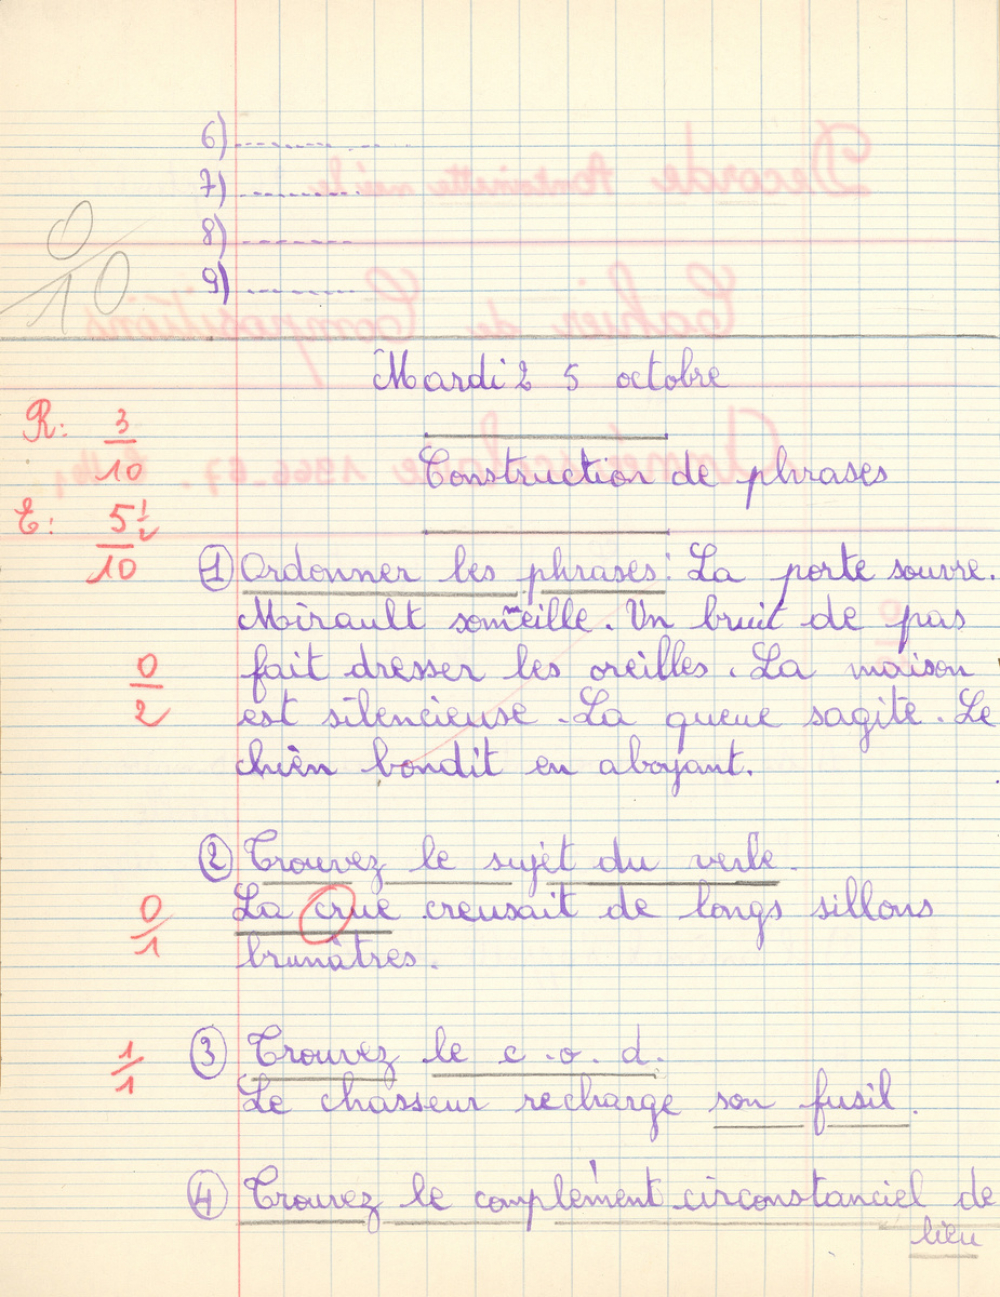 6) ..........
7) ..........
8) ..........
9) ..........
0/10
Mardi 25 octobre
R: 3/10
Construction de phrases
E: 5 1/2 /10
① Ordonner les phrases : La porte souvre.
Mirault someille. Un bruit de pas
0/2 fait dresser les oreilles. La maison
est silencieuse. La queue sagite. Le
chien bondit en aboyant.
② Trouvez le sujet du verbe.
0/1 La crue creusait de longs sillons
brunâtres.
③ Trouvez le c.o.d.
1/1 Le chasseur recharge son fusil.
④ Trouvez le complément circonstanciel de
lieu